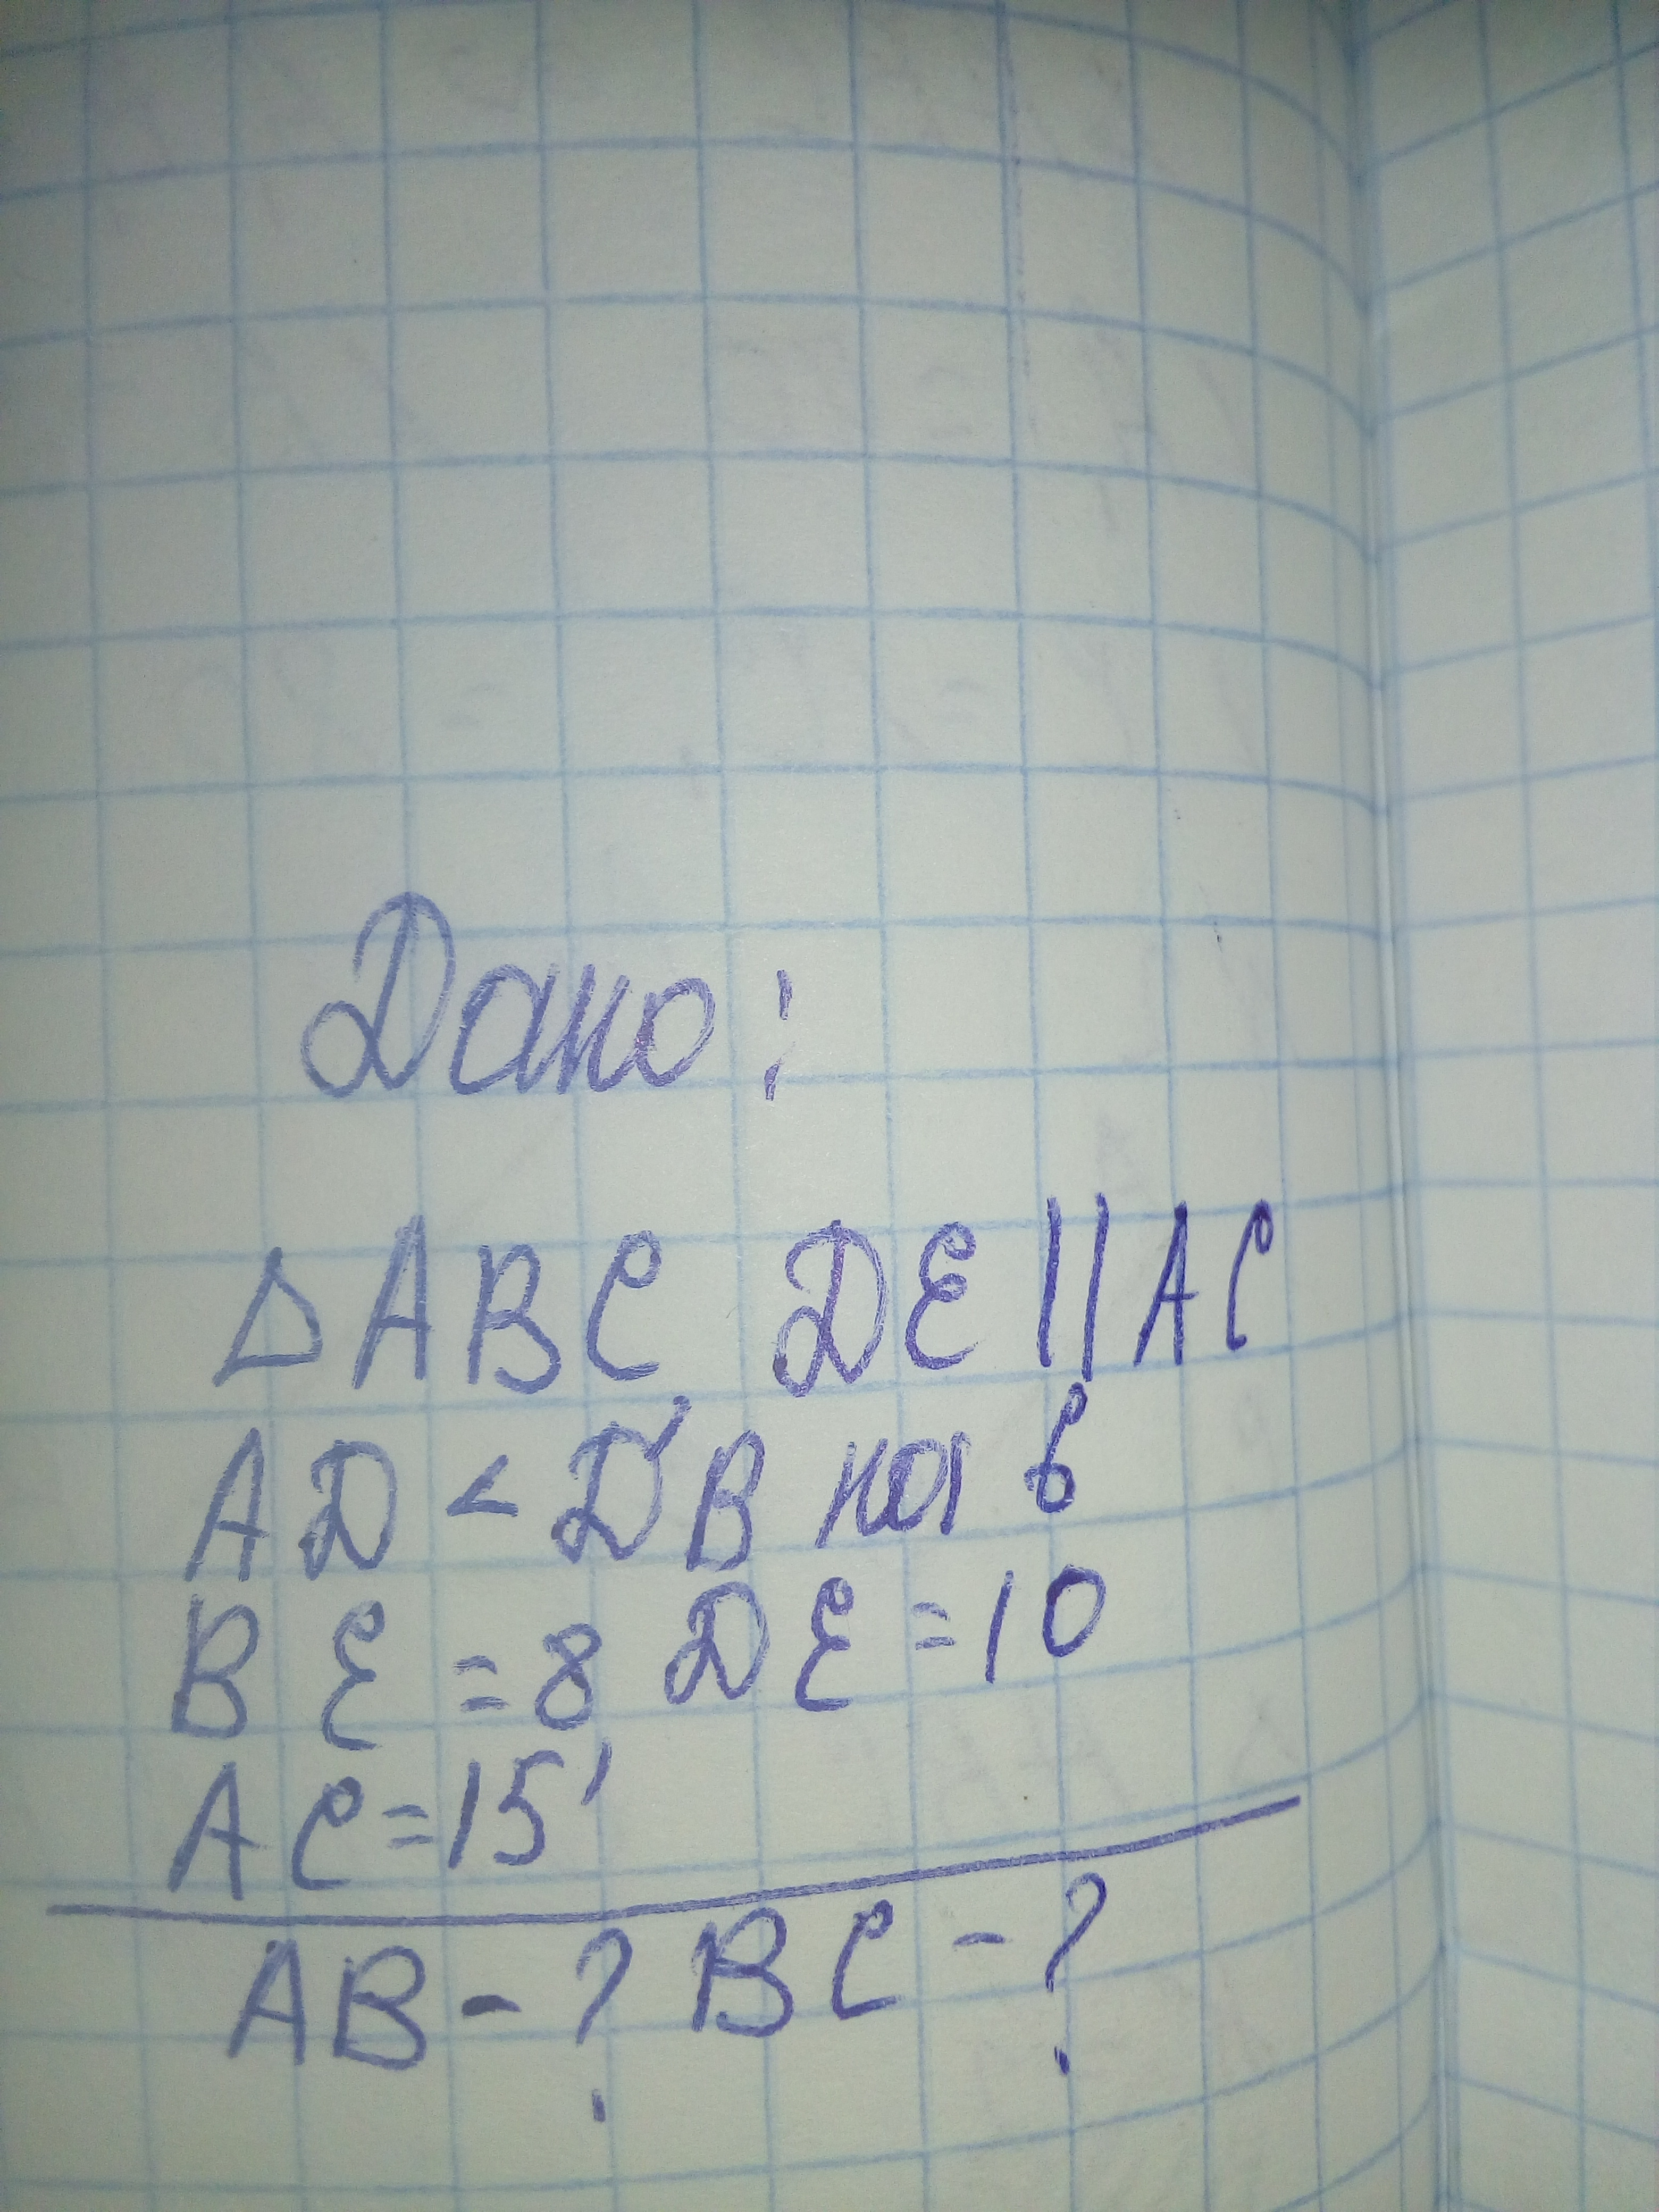 Дано:
△ABC, DE || AC
AD < DB на 6
BE = 8, DE = 10
AC = 15
AB - ? BC - ?